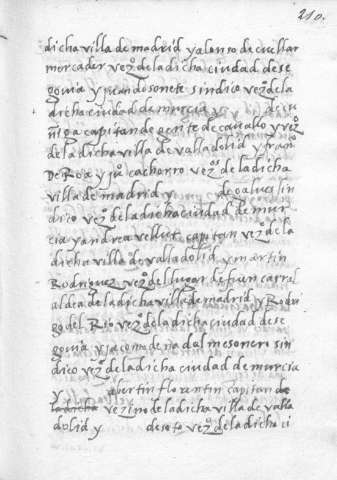 210.
dicha villa de madrid y alonso de cuellar
mercader vezº de la dicha ciudad de se
govia y juan dosonete sindico vezº de la
dicha ciudad de murcia y de
ñiga capitan de gente de cavallo y vezº
de la dicha villa de valladolid y franº
de Roa y juº cachorro vezºs de la dicha
villa de madrid y de galuez sin
dico vezº de la dicha ciudad de mur
cia y andrea vellut capitan vezº de la
dicha villa de valladolid y martin
Rodriguez vezº del lugar de fuencarral
aldea de la dicha villa de madrid y Rodri
go del Rio vezº de la dicha ciudad de se
govia y jacome de na dal mesonero sin
dico vezº de la dicha ciudad de murcia
y abertin florentin capitan de
la dicha vezino de la dicha villa de valla
dolid y de soto vezº de la dicha ci